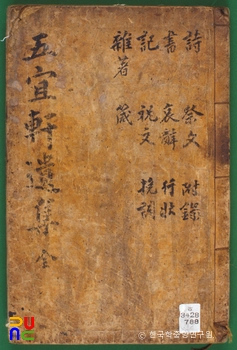 詩 祭文 附錄
書 哀辭 行狀
記 祝文 挽詞
雜著 箴
五宜軒遺集 全
ⓒ 한국학중앙연구원